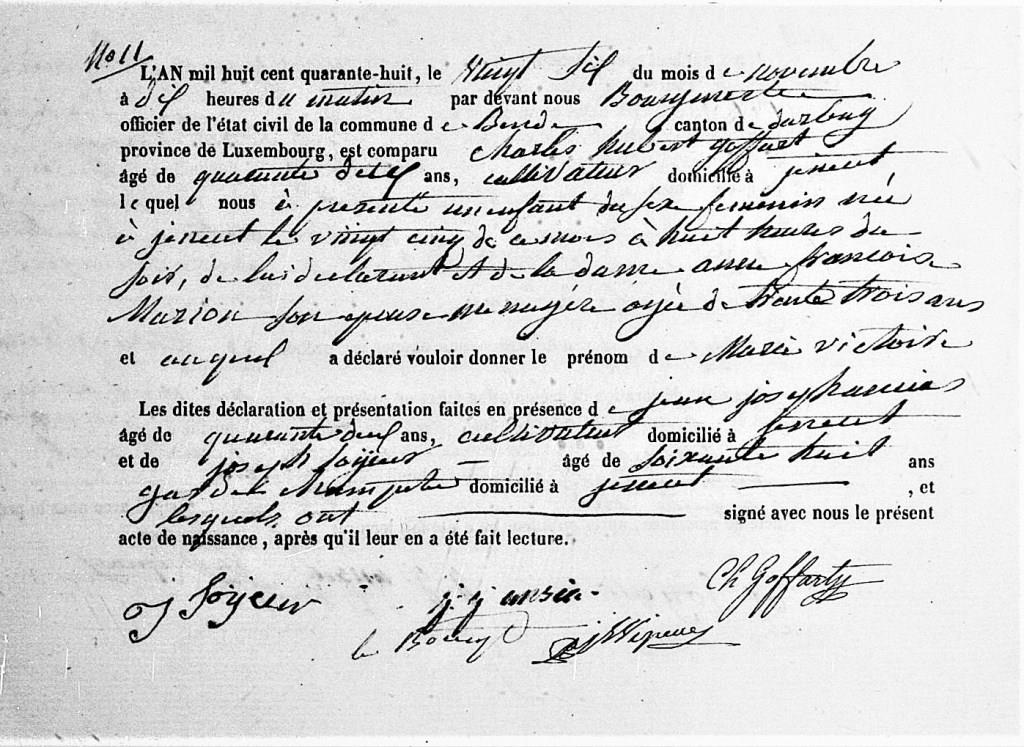 No 11
L'AN mil huit cent quarante-huit, le vingt six du mois de novembre
à dix heures du matin par devant nous Bourgmestre
officier de l'état civil de la commune de Bende canton de durbuy
province de Luxembourg, est comparu Charles hubert goffart
âgé de quarante ans, cultivateur domicilié à jeneret
lequel nous à presenté un enfant du sexe feminin née
à jeneret le vingt cinq de ce mois à huit heures du
soir, de lui declarant et de la dame anne francoise
Marion son epouse menagère agée de trente trois ans
et auquel a déclaré vouloir donner le prénom de Marie victoire
Les dites déclaration et présentation faites en présence de jean joseph
âgé de quarante deux ans, cultivateur domicilié à jeneret
et de joseph soÿeur âgé de soixante huit ans
garde champetre domicilié à jeneret , et
lesquels ont signé avec nous le présent
acte de naissance, après qu'il leur en a été fait lecture.
j soÿeur j. j. Ch Goffart
le Bourg